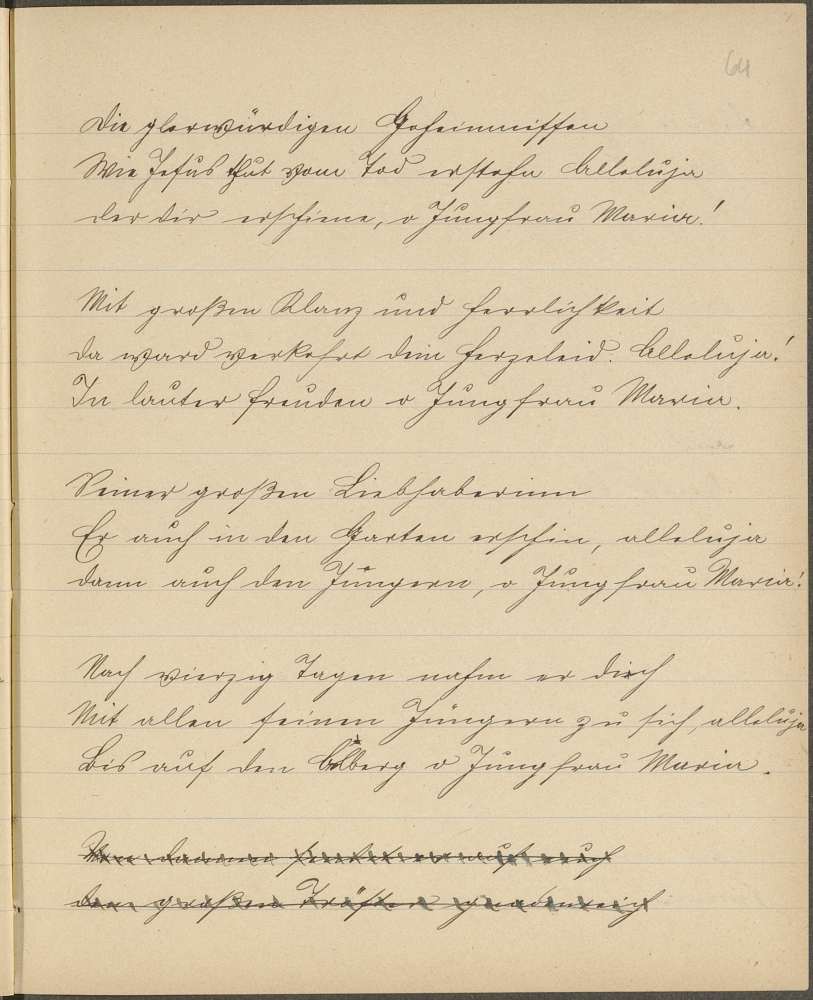 64
Die glorwürdigen Geheimnissen
Wie Jesus that vom Tod erstehn Alleluja
der dir erschiene, o Jungfrau Maria!
Mit großen Klanz und Herrlichkeit
da ward verkehrt dein Herzeleid. Alleluja!
In lauter Freuden o Jungfrau Maria.
Seiner großen Liebhaberinn
Er auch in den Garten erschin, alleluja
dann auch den Jüngern, o Jungfrau Maria!
Nach vierzig Tagen nahm er dich
Mit allen seinen Jüngern zu sich, alleluja
Bis auf den berg o Jungfrau Maria.
Von dannen sendet er auch
den großen Tröster gnadenreich